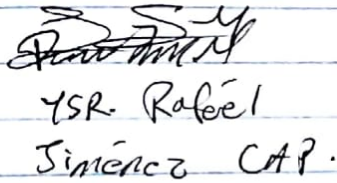 YSR. Raféel
Jiménez CAP.